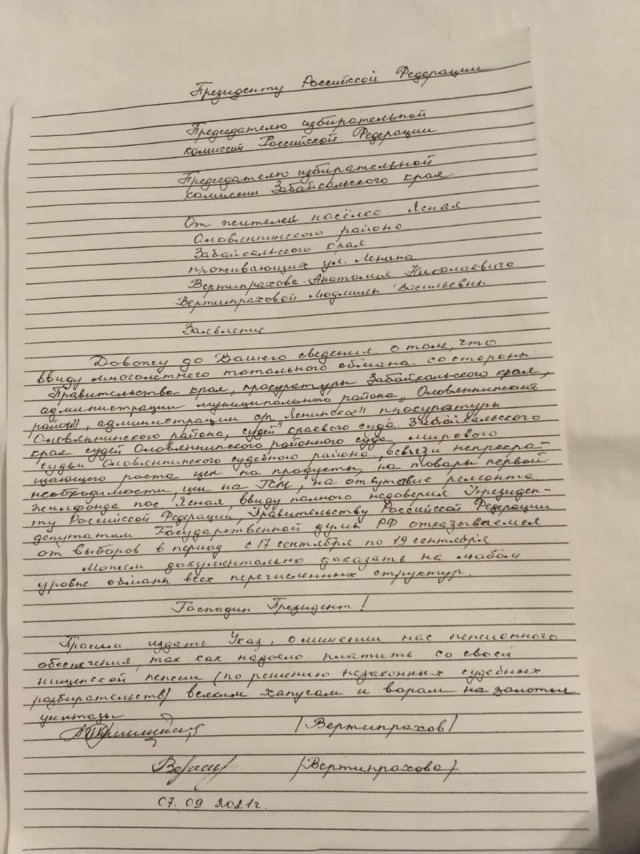 Президенту Российской Федерации
Председателю избирательной
комиссии Российской Федерации
Председателю избирательной
комиссии Забайкальского края
От жителей посёлка Ясная
Оловяннинского района
Забайкальского края
проживающих ул. Ленина
Вертипрахова Анатолия Николаевича
Вертипраховой Людмилы Васильевны
Заявление
Довожу до Вашего сведения о том, что
ввиду многолетнего тотального обмана со стороны
Правительства края, прокуратуры Забайкальского края,
администрации муниципального района „Оловяннинский
район", администрации ср „Ленинское" прокуратуры
Оловяннинского района, судей краевого суда Забайкальского
края судей Оловяннинского районного суда, мирового
судьи Оловянинского судебного района, всвязи непрекра-
щающего роста цен на продукты, на товары первой
необходимости, цен на ГСМ, на отсутствие ремонта
жилфонда пос Ясная, ввиду полного недоверия Президен-
ту Российской Федерации, Правительству Российской Федерации
депутатам Государственной думы РФ отказываемся
от выборов в период с 17 сентября по 19 сентября
Можем документально доказать на любом
уровне обман всех перечисленных структур.
Господин Президент!
Просим издать Указ, о лишении нас пенсионного
обеспечения, так как надоело платить со своей
нищенской пенсии (по решению незаконных судебных
разбирательств) всяким хапугам и ворам на золотые
унитазы
(Вертипрахов)
(Вертипрахова)
07.09 2021г.